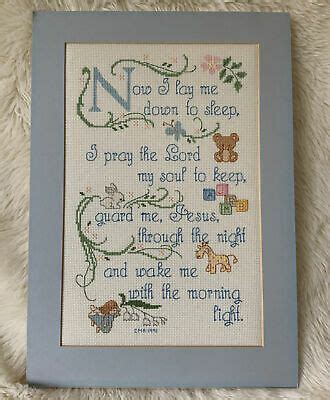 Now I lay me
down to sleep,
I pray the Lord
my soul to keep,
guard me, Jesus,
through the night
and wake me
with the morning
light.